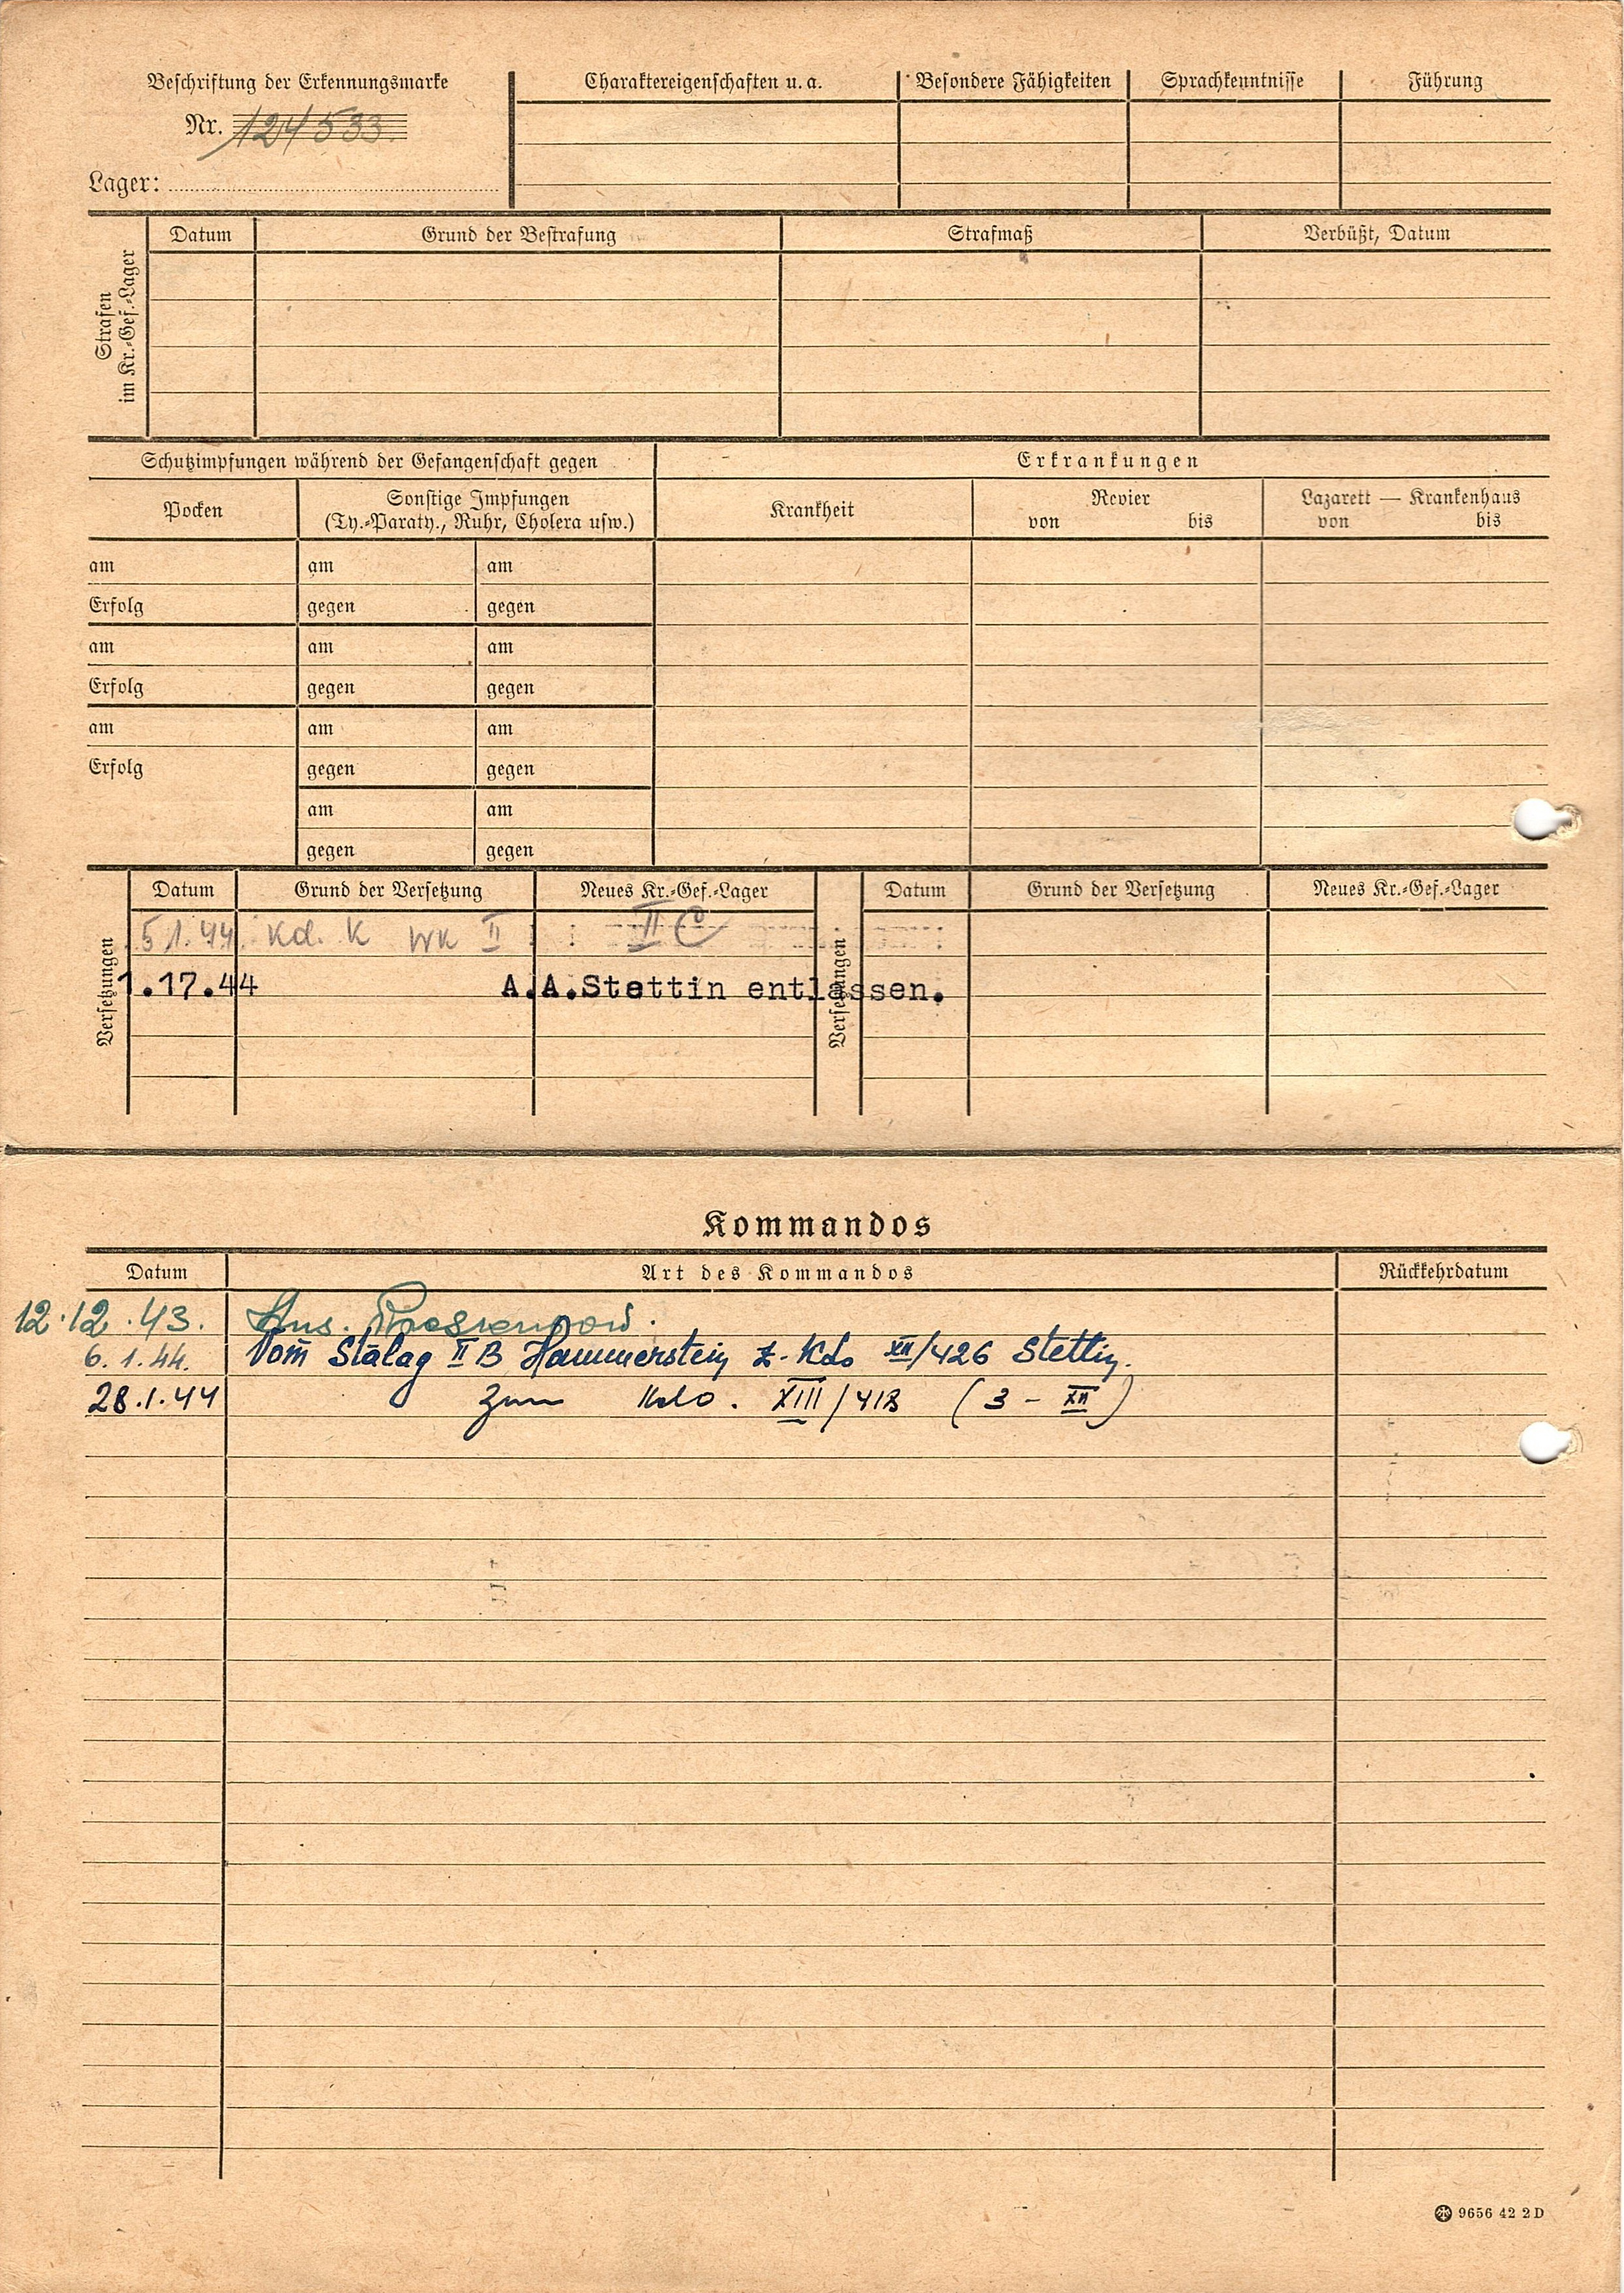 Beschriftung der Erkennungsmarke
Nr. 124533
Lager:
Charaktereigenschaften u. a. Besondere Fähigkeiten Sprachkenntnisse Führung
Strafen
im Kr.-Gef.-Lager
Datum Grund der Bestrafung Strafmaß Verbüßt, Datum
Schutzimpfungen während der Gefangenschaft gegen Erkrankungen
Pocken
Sonstige Impfungen
(Ty.-Paraty., Ruhr, Cholera usw.)
Krankheit
Revier
von bis
Lazarett — Krankenhaus
von bis
am am am
Erfolg gegen gegen
am am am
Erfolg gegen gegen
am am am
Erfolg gegen gegen
am am
gegen gegen
Versetzungen
Datum Grund der Versetzung Neues Kr.-Gef.-Lager
5.1.44 Kd. K WK II II C
1.17.44 A.A.Stettin entlassen.
Versetzungen
Datum Grund der Versetzung Neues Kr.-Gef.-Lager
Kommandos
Datum Art des Kommandos Rückkehrdatum
12.12.43.
6.1.44. Vom Stalag II B Hammerstein z. Kdo XII/426 Stettin.
28.1.44 zum Kdo. XIII/418 (3 - XII)
9656 42 2 D